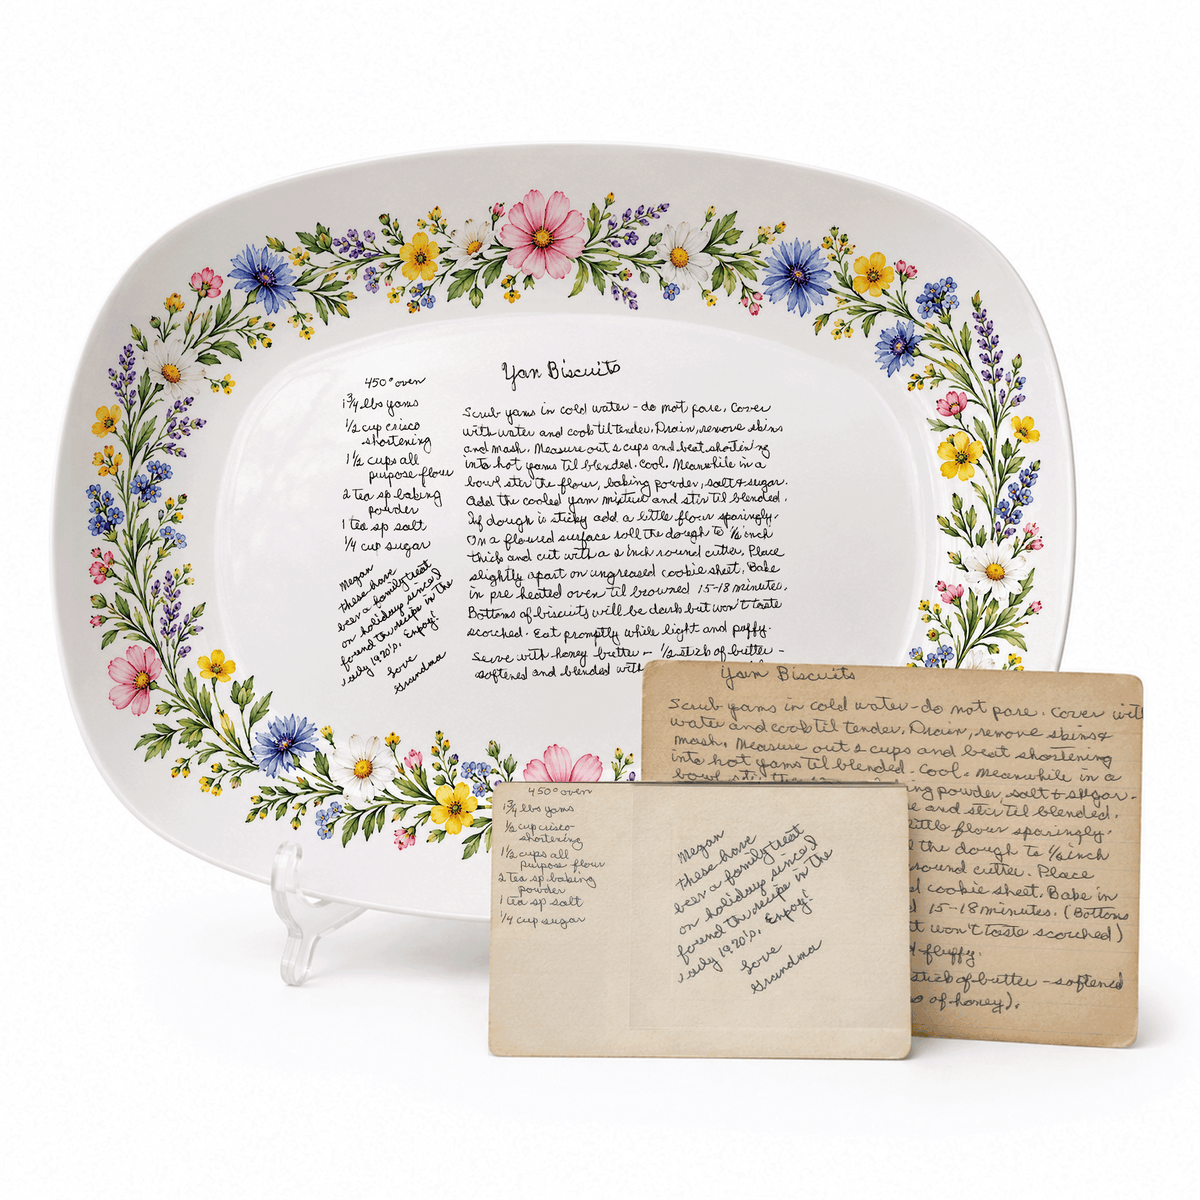 Yam Biscuits
450° oven
1 3/4 lbs yams
1/2 cup crisco
shortening
1 1/2 cups all
purpose flour
2 tea sp baking
powder
1 tea sp salt
1/4 cup sugar
Megan
these have
been a family treat
on holidays since I
found the recipe in the
early 1920's. Enjoy!
Love
Grandma
Scrub yams in cold water - do not pare. Cover
with water and cook til tender. Drain, remove skins
and mash. Measure out 2 cups and beat shortening
into hot yams til blended. Cool. Meanwhile in a
bowl stir the flour, baking powder, salt & sugar.
Add the cooled yam mixture and stir til blended.
If dough is sticky add a little flour sparingly.
On a floured surface roll the dough to 1/2 inch
thick and cut with a 2 inch round cutter. Place
slightly apart on ungreased cookie sheet. Bake
in pre heated oven til browned 15-18 minutes.
Bottoms of biscuits will be dark but won't taste
scorched. Eat promptly while light and puffy.
Serve with honey butter - 1/2 stick of butter -
softened and blended with
Yam Biscuits
Scrub yams in cold water - do not pare. Cover with
water and cook til tender. Drain, remove skins &
mash. Measure out 2 cups and beat shortening
into hot yams til blended. Cool. Meanwhile in a
bowl stir the
ing powder, salt & sugar.
e and stir til blended.
ittle flour sparingly.
the dough to 1/2 inch
round cutter. Place
d cookie sheet. Bake in
15-18 minutes. (Bottoms
t won't taste scorched)
& fluffy.
stick of butter - softened
of honey).
450° oven
1 3/4 lbs yams
1/2 cup crisco
shortening
1 1/2 cups all
purpose flour
2 tea sp baking
powder
1 tea sp salt
1/4 cup sugar
Megan
these have
been a family treat
on holidays since I
found the recipe in the
early 1920's. Enjoy!
Love
Grandma